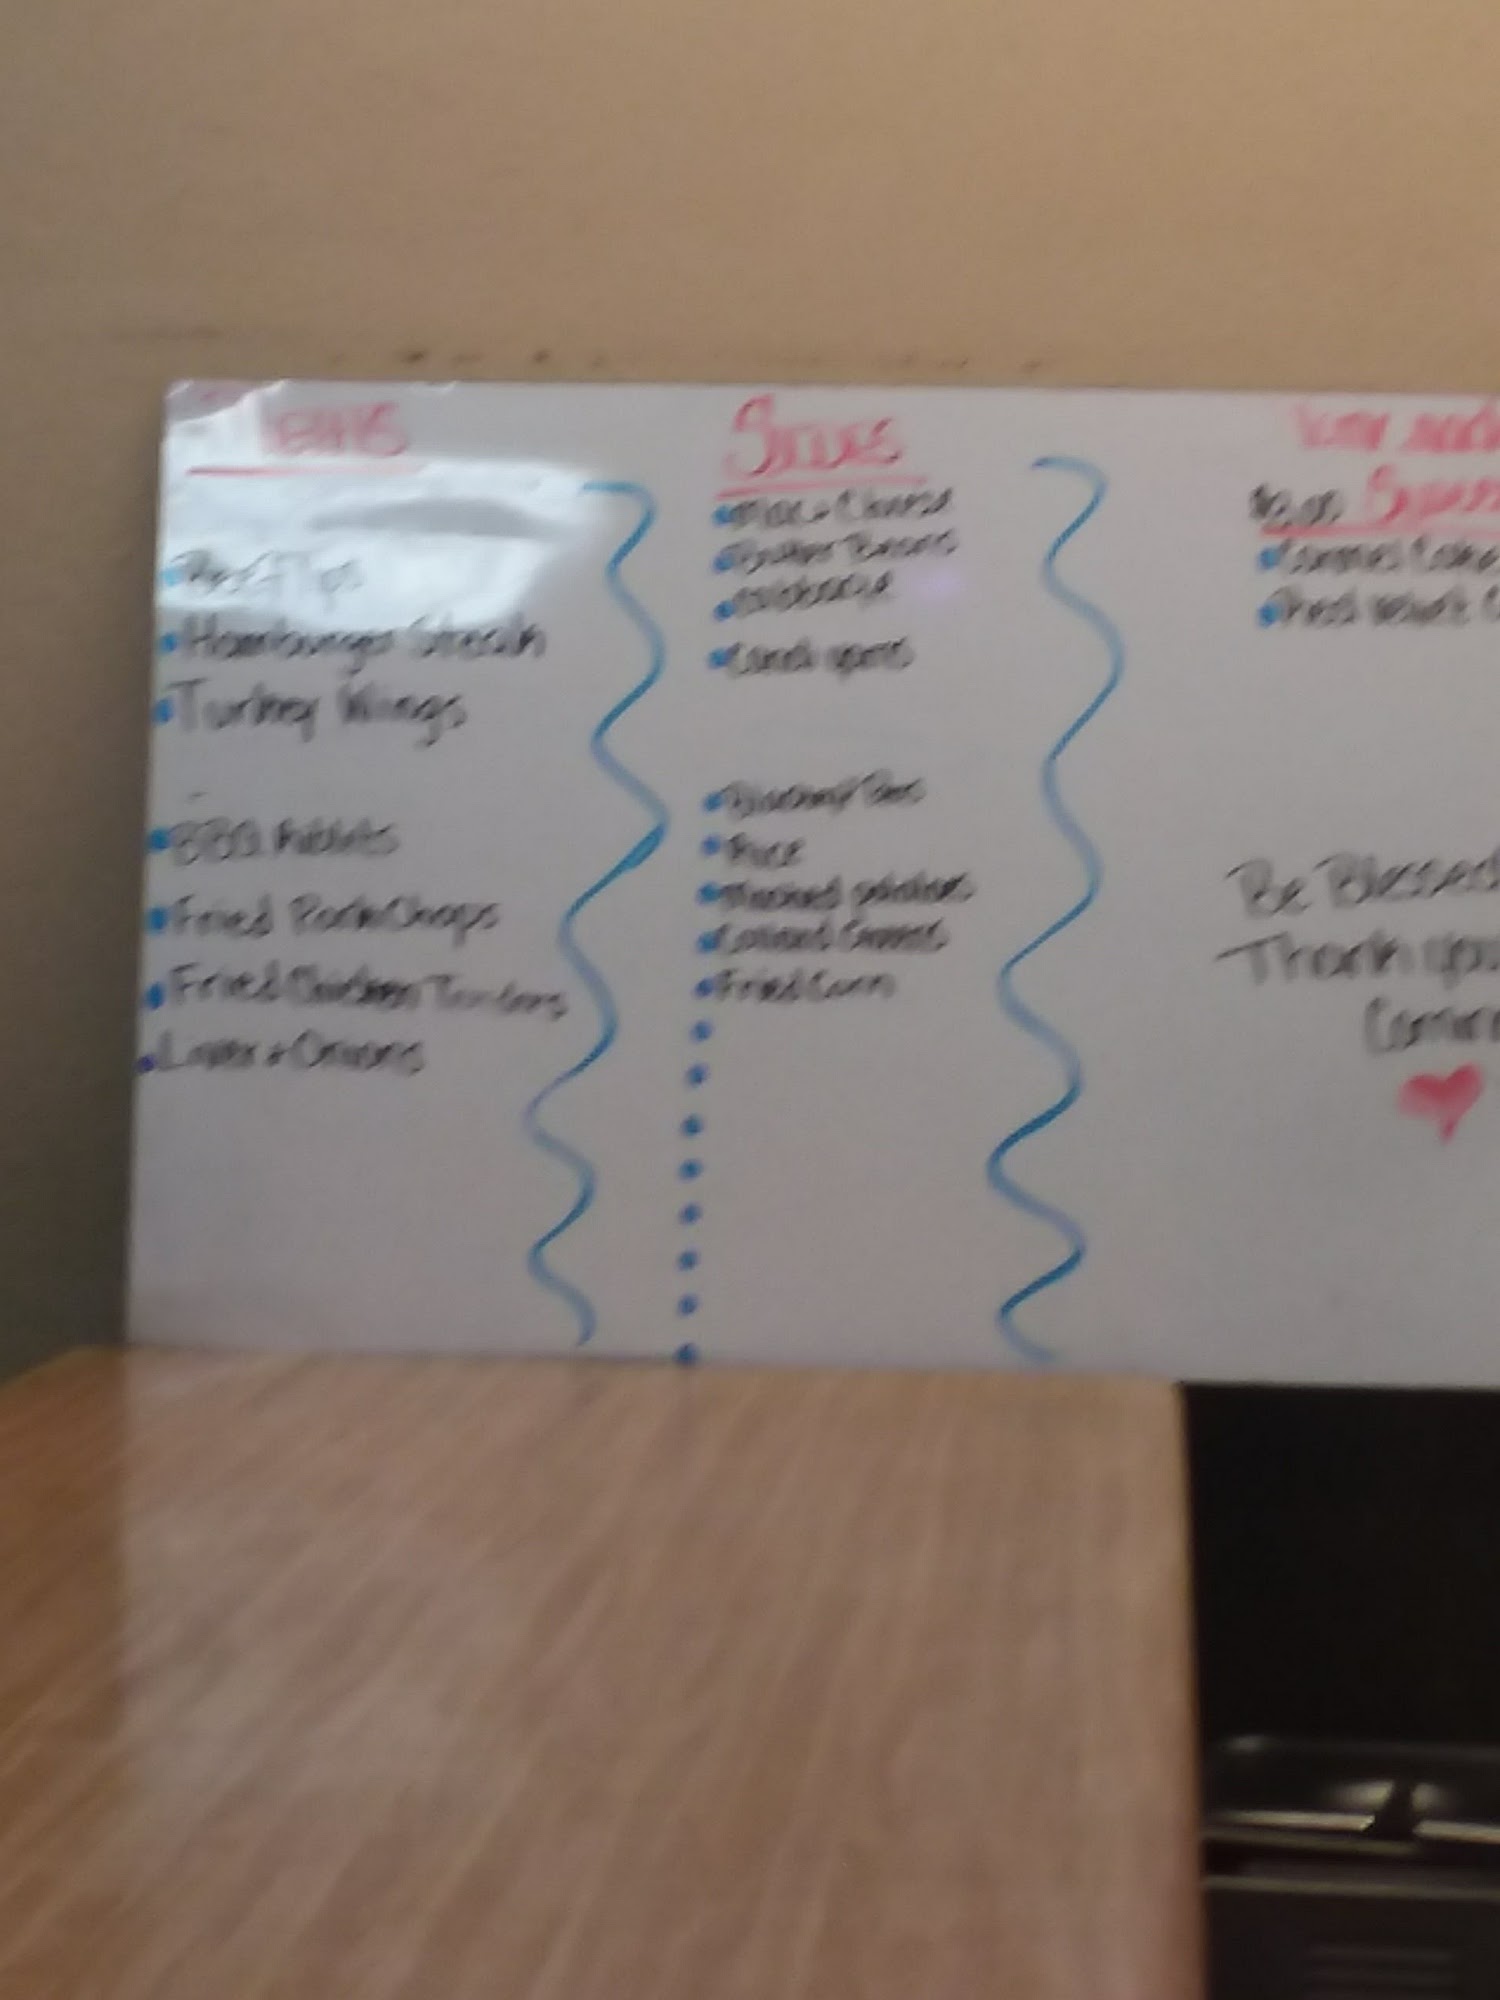 Sides
Beef Tips
Hamburger Steak
Turkey Wings
BBQ Riblets
Fried PorkChops
Fried Chicken Tenders
Liver + Onions
Mac + Cheese
Butter Beans
Cabbage
Candi yams
Rice
Mashed potatoes
Collard Greens
Fried Corn
$2.00
Red
Be Blessed
Thank you